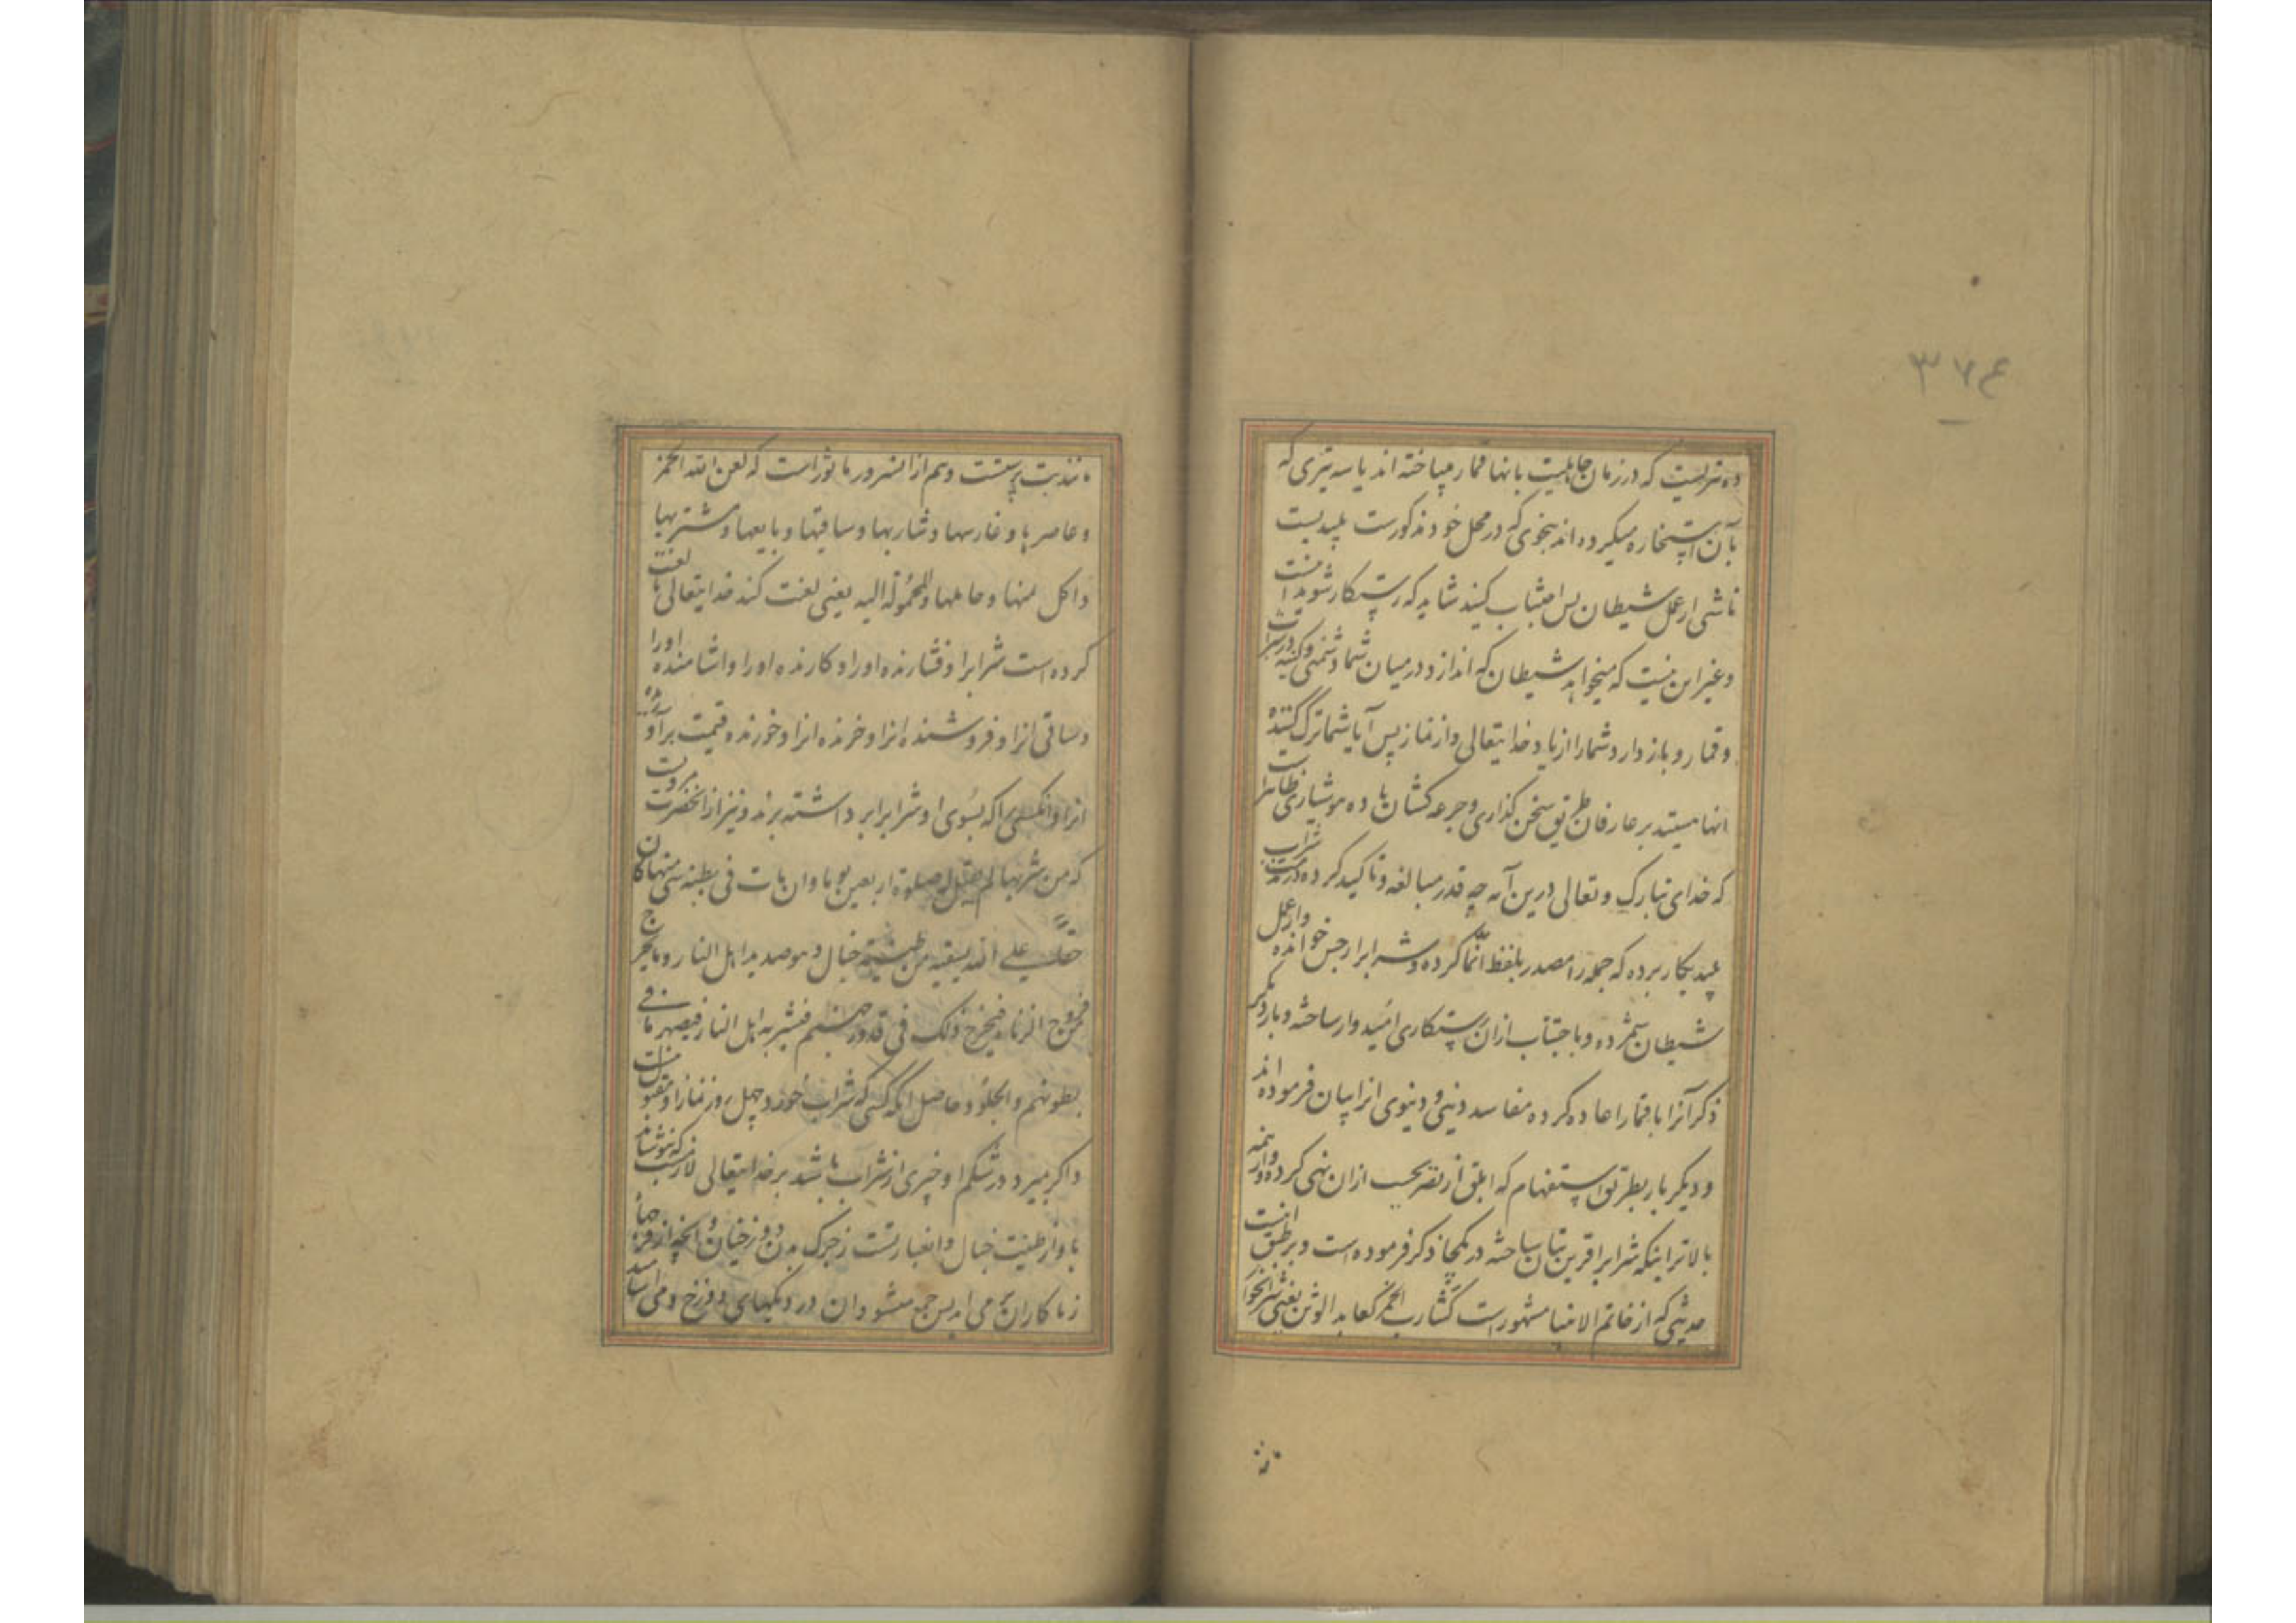 ۳۷۶
ده تیریست که در زمان جاهلیت بانها قمار میباخته اند یا سه تیری که
بآن استخاره میکرده اند بنحوی که در محل خود مذکورست پلیدیست
ناشی از عمل شیطان پس اجتناب کنید شاید که رستکار شوید
و غیر این نیست که میخواهد شیطان که اندازد در میان شما دشمنی و کینه در شراب
و قمار و باز دارد شما را از یاد خدایتعالی و از نماز پس آیا شما ترک کننده
انها هستید بر عارفان طریق سخن کذاری و جرعه کشان باده هوشیاری ظاهر است
که خدای تبارک و تعالی درین آیه چه قدر مبالغه و تاکید کرده در حرمت شراب
بکار برده که جمله را مصدر بلفظ انّما کرده و شرابرا رجس خوانده و از عمل
شیطان شمرده و باجتناب ازان رستکاری امیدوار ساخته و بار دیکر
ذکر آنرا با قمار اعاده کرده مفاسد دینی و دنیوی انرا بیان فرموده اند
و دیکر بار بطریق استفهام که ابلق از تصریحست ازان نهی کرده و از همه
بالاتر اینکه شرابرا قرین بتان ساخته در یکجا ذکر فرموده است و بر طبق اینست
حدیثی که از خاتم الانبیا مشهور است کشارب الخمر کعابد الوثن یعنی شرابخوار
مانند بت پرستست و هم ازانسرور ماثور است که لعن الله الخمر
و عاصرها و غارسها و شاربها و ساقیها و بایعها و مشتریها
و اکل ثمنها و حاملها والمحمولة الیه یعنی لعنت کند خدایتعالی یا لعنت
کرده است شرابرا و فشارنده اورا و کارنده اورا و اشامنده اورا
و ساقی انرا و فروشنده انرا و خرنده انرا و خورنده قیمت
انرا و انکسی را که بسوی او شرابرا برداشته برند و نیز از انحضرت مرویست
که من شربها لم یقبل له صلوة اربعین یوما وان مات فی بطنه شی منها کان
حقا علی الله یسقیه من طینته خبال و هو صدید اهل النار و ما یخرج
فروج الزناه فیجتمع ذلک فی قدور جهنم فیشربه اهل النار فیصهر ما فی
بطونهم والجلود حاصل انکه کسی که شراب خورد چهل روز نماز او مقبول نیست
و اکر بمیرد و در شکم او چیزی از شراب باشد بر خدایتعالی لازمست که بنوشاند
باو از طینت خبال و ان عبارتست از چرک بدن دوزخیان و انچه از فرجهاء
زناکاران بر می اید پس جمع میشود ان در دیکهای دوزخ و می اشامند